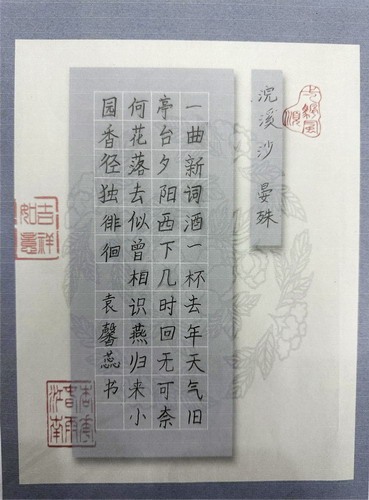 浣溪沙 晏殊
一曲新词酒一杯去年天气旧
亭台夕阳西下几时回无可奈
何花落去似曾相识燕归来小
园香径独徘徊 袁馨蕊书
吉祥
如意
杏花
春雨
江南